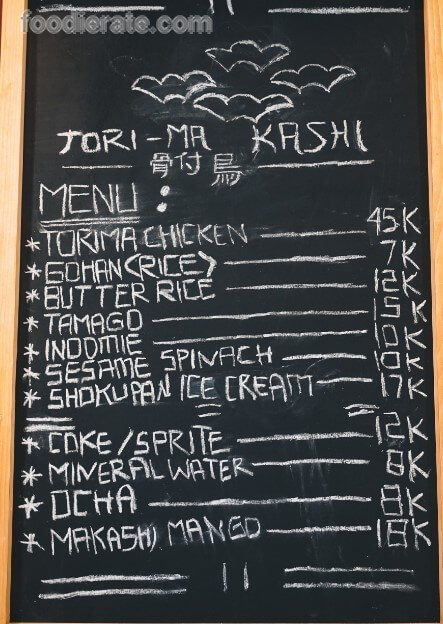 foodierate.com
TORI-MA KASHI
骨付鳥
MENU :
* TORIMA CHICKEN 45K
* GOHAN <RICE> 7K
* BUTTER RICE 12K
* TAMAGO 15K
* INDOMIE 10K
* SESAME SPINACH 10K
* SHOKUPAN ICE CREAM 17K
* COKE/SPRITE 12K
* MINERAL WATER 8K
* OCHA 8K
* MAKASHI MANGO 18K